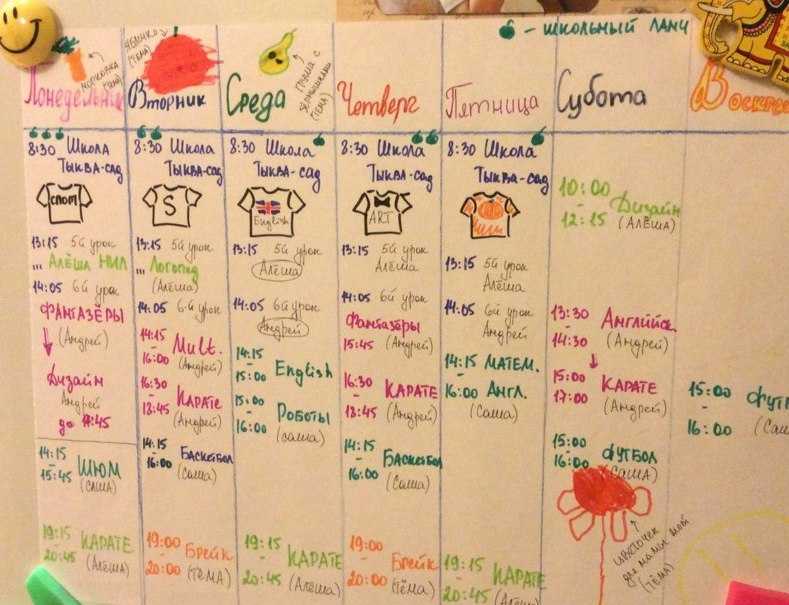 - школьный ланч
морковка (тёма)
яблочко (тёма)
груша с
(тёма)
Понедельник
Вторник
Среда
Четверг
Пятница
Субота
8:30 Школа
Тыква-сад
СПОРТ
13:15 5й урок
... Алёша НИЛ
14:05 6й урок
Фантазёры
(Андрей)
Дизайн
Андрей
14:15
-
15:45
(Саша)
19:15
-
20:45
Каратe
(Алёша)
8:30 Школа
Тыква-сад
S
13:15 5й урок
... Логопед
(Алёша)
14:05 6й урок
14:15
-
16:00
Mult.
(Андрей)
16:30
-
18:45
Каратe
(Андрей)
14:15
-
16:00
Баскетбол
(Саша)
19:00
-
20:00
Брейк
(Тёма)
8:30 Школа
Тыква-сад
English
13:15 5й урок
Алёша
14:05 6й урок
Андрей
14:15
-
15:00
English
15:00
-
16:00
Роботы
(Саша)
19:15
-
20:45
Каратe
(Алёша)
8:30 Школа
Тыква-сад
ART
13:15 5й урок
Алёша
14:05 6й урок
Фантазёры
15:45 (Андрей)
16:30
-
18:45
Каратe
(Андрей)
14:15
-
16:00
Баскетбол
(Саша)
19:00
-
20:00
Брейк
(Тёма)
8:30 Школа
Тыква-сад
13:15 5й урок
Алёша
14:05 6й урок
Андрей
14:15 Матем.
-
16:00 Англ.
(Саша)
19:15
-
20:45
Каратe
(Алёша)
10:00
-
12:15
Дизайн
(Алёша)
13:30
-
14:30
Английск.
(Андрей)
15:00
-
17:00
Каратe
(Андрей)
15:00
-
16:00
Футбол
(Саша)
цветочек
для мамы мой
(тёма)
15:00
-
16:00